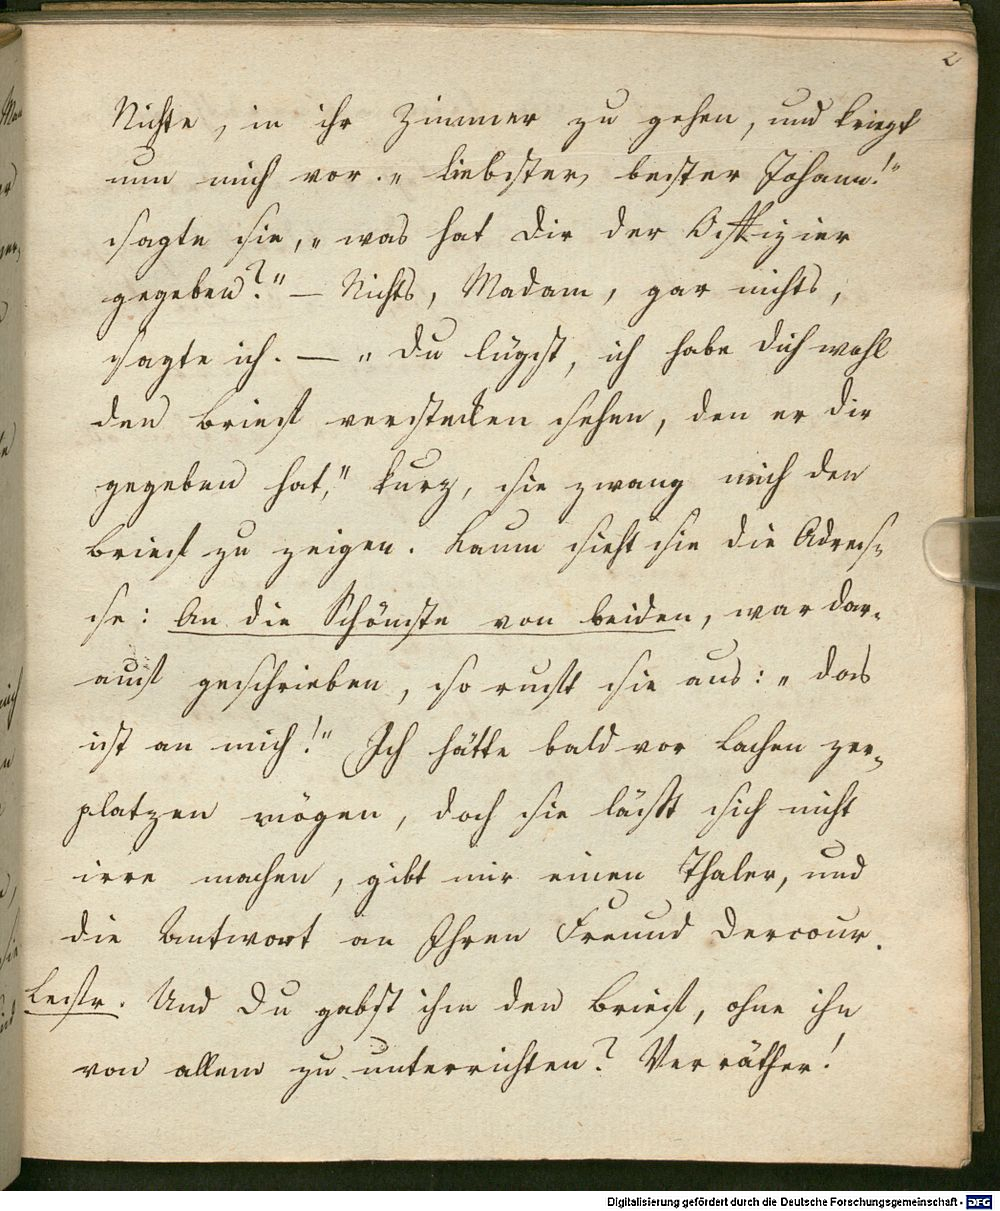 2
Nichte, in ihr Zimmer zu gehen, und kriegt
nun mich vor. „Liebster, bester Johann!"
sagte sie, „was hat Dir der Offizier
gegeben?" — Nichts, Madam, gar nichts,
sagte ich. — „Du lügst, ich habe Dich wohl
den Brief verstecken sehen, den er Dir
gegeben hat," kurz, sie zwang mich den
Brief zu zeigen. Kaum sieht sie die Adres-
se: An die Schönste von beiden, war dar-
auf geschrieben, so ruft sie aus: „das
ist an mich!" Ich hätte bald vor Lachen zer-
platzen mögen, doch sie läßt sich nicht
irre machen, gibt mir einen Thaler, und
die Antwort an Ihren Freund Dercour.
Und Du gabst ihm den Brief, ohne ihn
von allem zu unterrichten? Verräther!
Digitalisierung gefördert durch die Deutsche Forschungsgemeinschaft - DFG